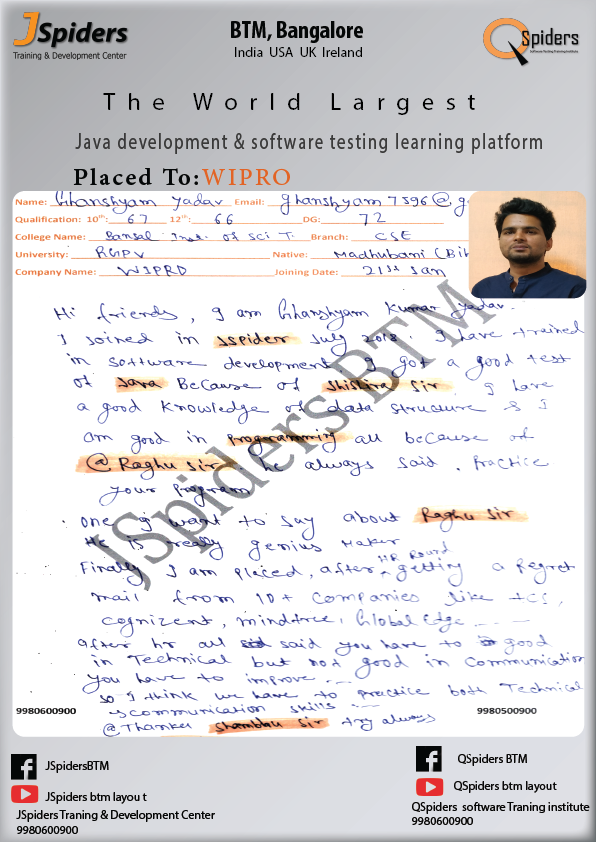 JSpiders
Training & Development Center
BTM, Bangalore
India USA UK Ireland
QSpiders
Software Testing Training Institute
The World Largest
Java development & software testing learning platform
Placed To:WIPRO
Name: Ghanshyam Yadav Email: ghanshyam7596@g
Qualification: 10th: 67 12th: 66 DG: 72
College Name: Bansal Inst. of Sci T. Branch: CSE
University: RGPV Native: Madhubani (Bih
Company Name: WIPRO Joining Date: 21st Jan
Hi friends, I am Ghanshyam Kumar Yadav.
I joined in Jspider July 2018. I have trained
in software development. I got a good test
of Java Because of Shishira Sir. I have
a good knowledge of data structure & I
am good in programming all because of
@ Raghu Sir. he always said. Practice
your program
one I want to say about Raghu Sir
He is really genius maker
Finally I am placed, after HR Round getting a Regret
mail from 10+ companies like TCS,
cognizent, mindtree, Global Edge ...
after hr all said you have to good
in Technical but not good in Communication
you have to improve ...
so I think we have to practice both Technical
& communication skills ...
@Thanks Shambhu Sir try always
JSpiders BTM
9980600900
9980500900
JSpidersBTM
JSpiders btm layou t
JSpiders Traning & Development Center
9980600900
QSpiders BTM
QSpiders btm layout
QSpiders software Traning institute
9980600900